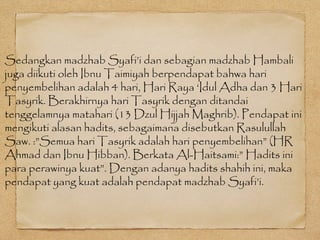 Sedangkan madzhab Syafi'i dan sebagian madzhab Hambali
juga diikuti oleh Ibnu Taimiyah berpendapat bahwa hari
penyembelihan adalah 4 hari, Hari Raya 'Idul Adha dan 3 Hari
Tasyrik. Berakhirnya hari Tasyrik dengan ditandai
tenggelamnya matahari (13 Dzul Hijjah Maghrib). Pendapat ini
mengikuti alasan hadits, sebagaimana disebutkan Rasulullah
Saw. :"Semua hari Tasyrik adalah hari penyembelihan" (HR
Ahmad dan Ibnu Hibban). Berkata Al-Haitsami:" Hadits ini
para perawinya kuat". Dengan adanya hadits shahih ini, maka
pendapat yang kuat adalah pendapat madzhab Syafi'i.